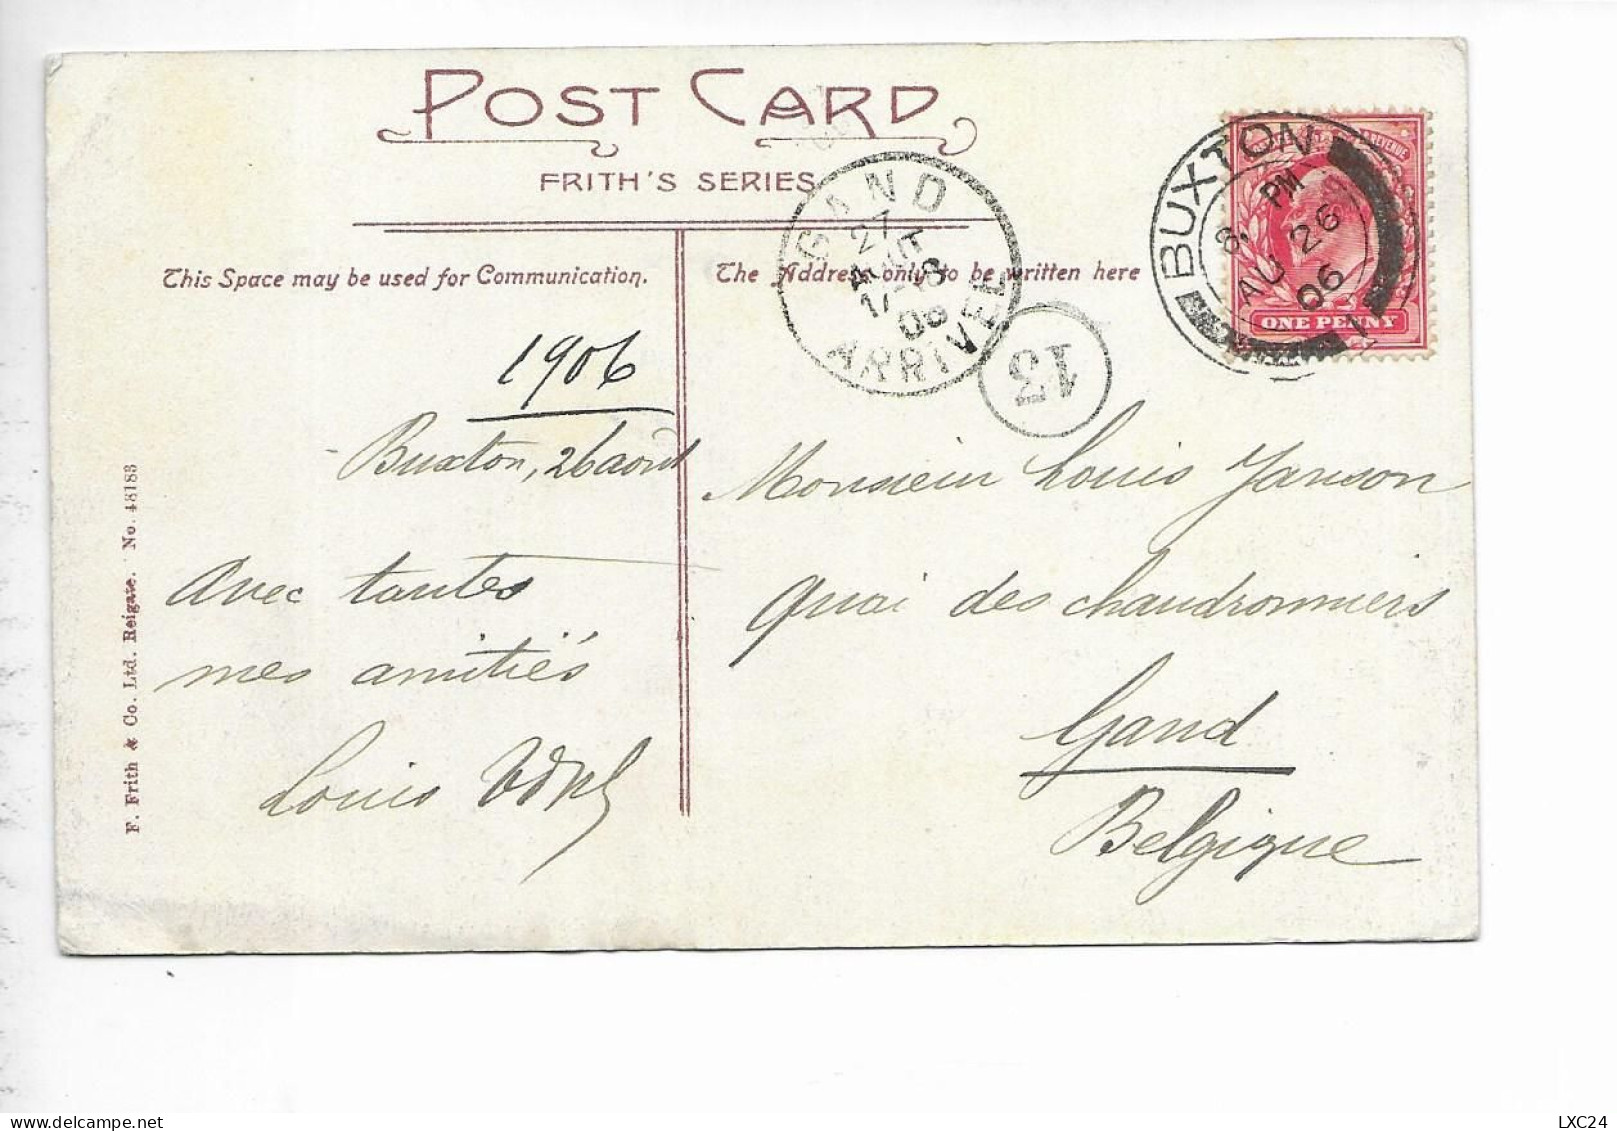 POST CARD
FRITH'S SERIES
This Space may be used for Communication.
The Address only to be written here
GAND
27
AOUT
17-18
06
ARRIVEE
13
BUXTON
8. PM
AU 26
06
REVENUE
ONE PENNY
1906
Buxton, 26 août
Avec toutes
mes amitiés
Louis
Monsieur Louis Janson
Quai des chaudronniers
Gand
Belgique
F. Frith & Co. Ltd. Reigate. No. 48183
LXC24